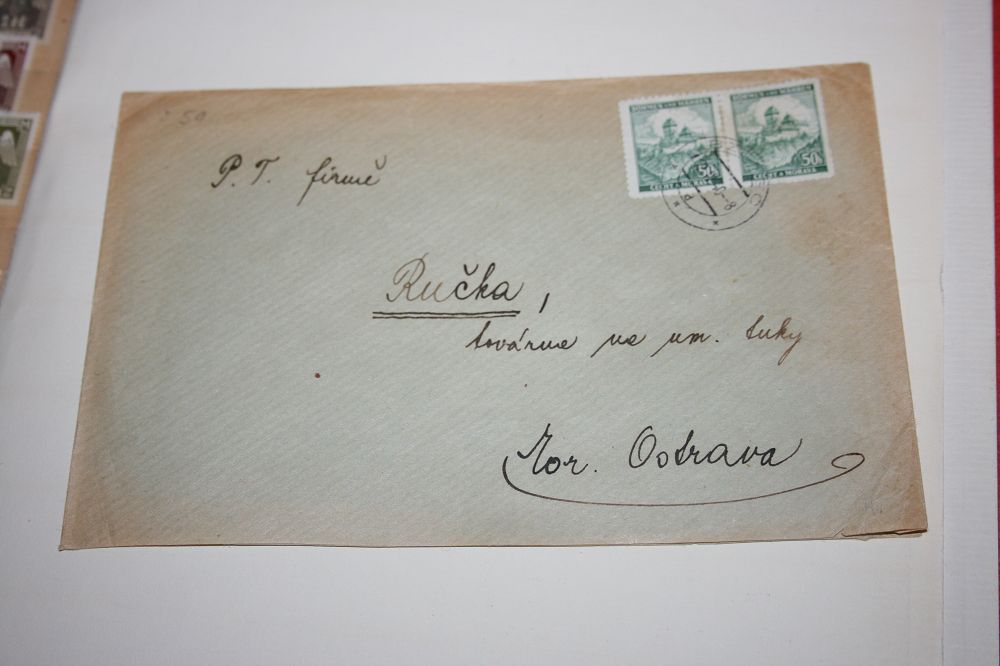 50
P. T. firmě
Ručka,
továrna na um. tuky
Mor. Ostrava
BÖHMEN UND MÄHREN
50
ČECHY A MORAVA
BÖHMEN UND MÄHREN
50
ČECHY A MORAVA